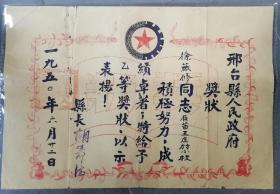 邢台縣人民政府
獎狀
徐蔭修同志
積極努力，成
績卓著；特給予
乙等獎狀，以示
表揚！
縣長
一九五〇年六月廿二日